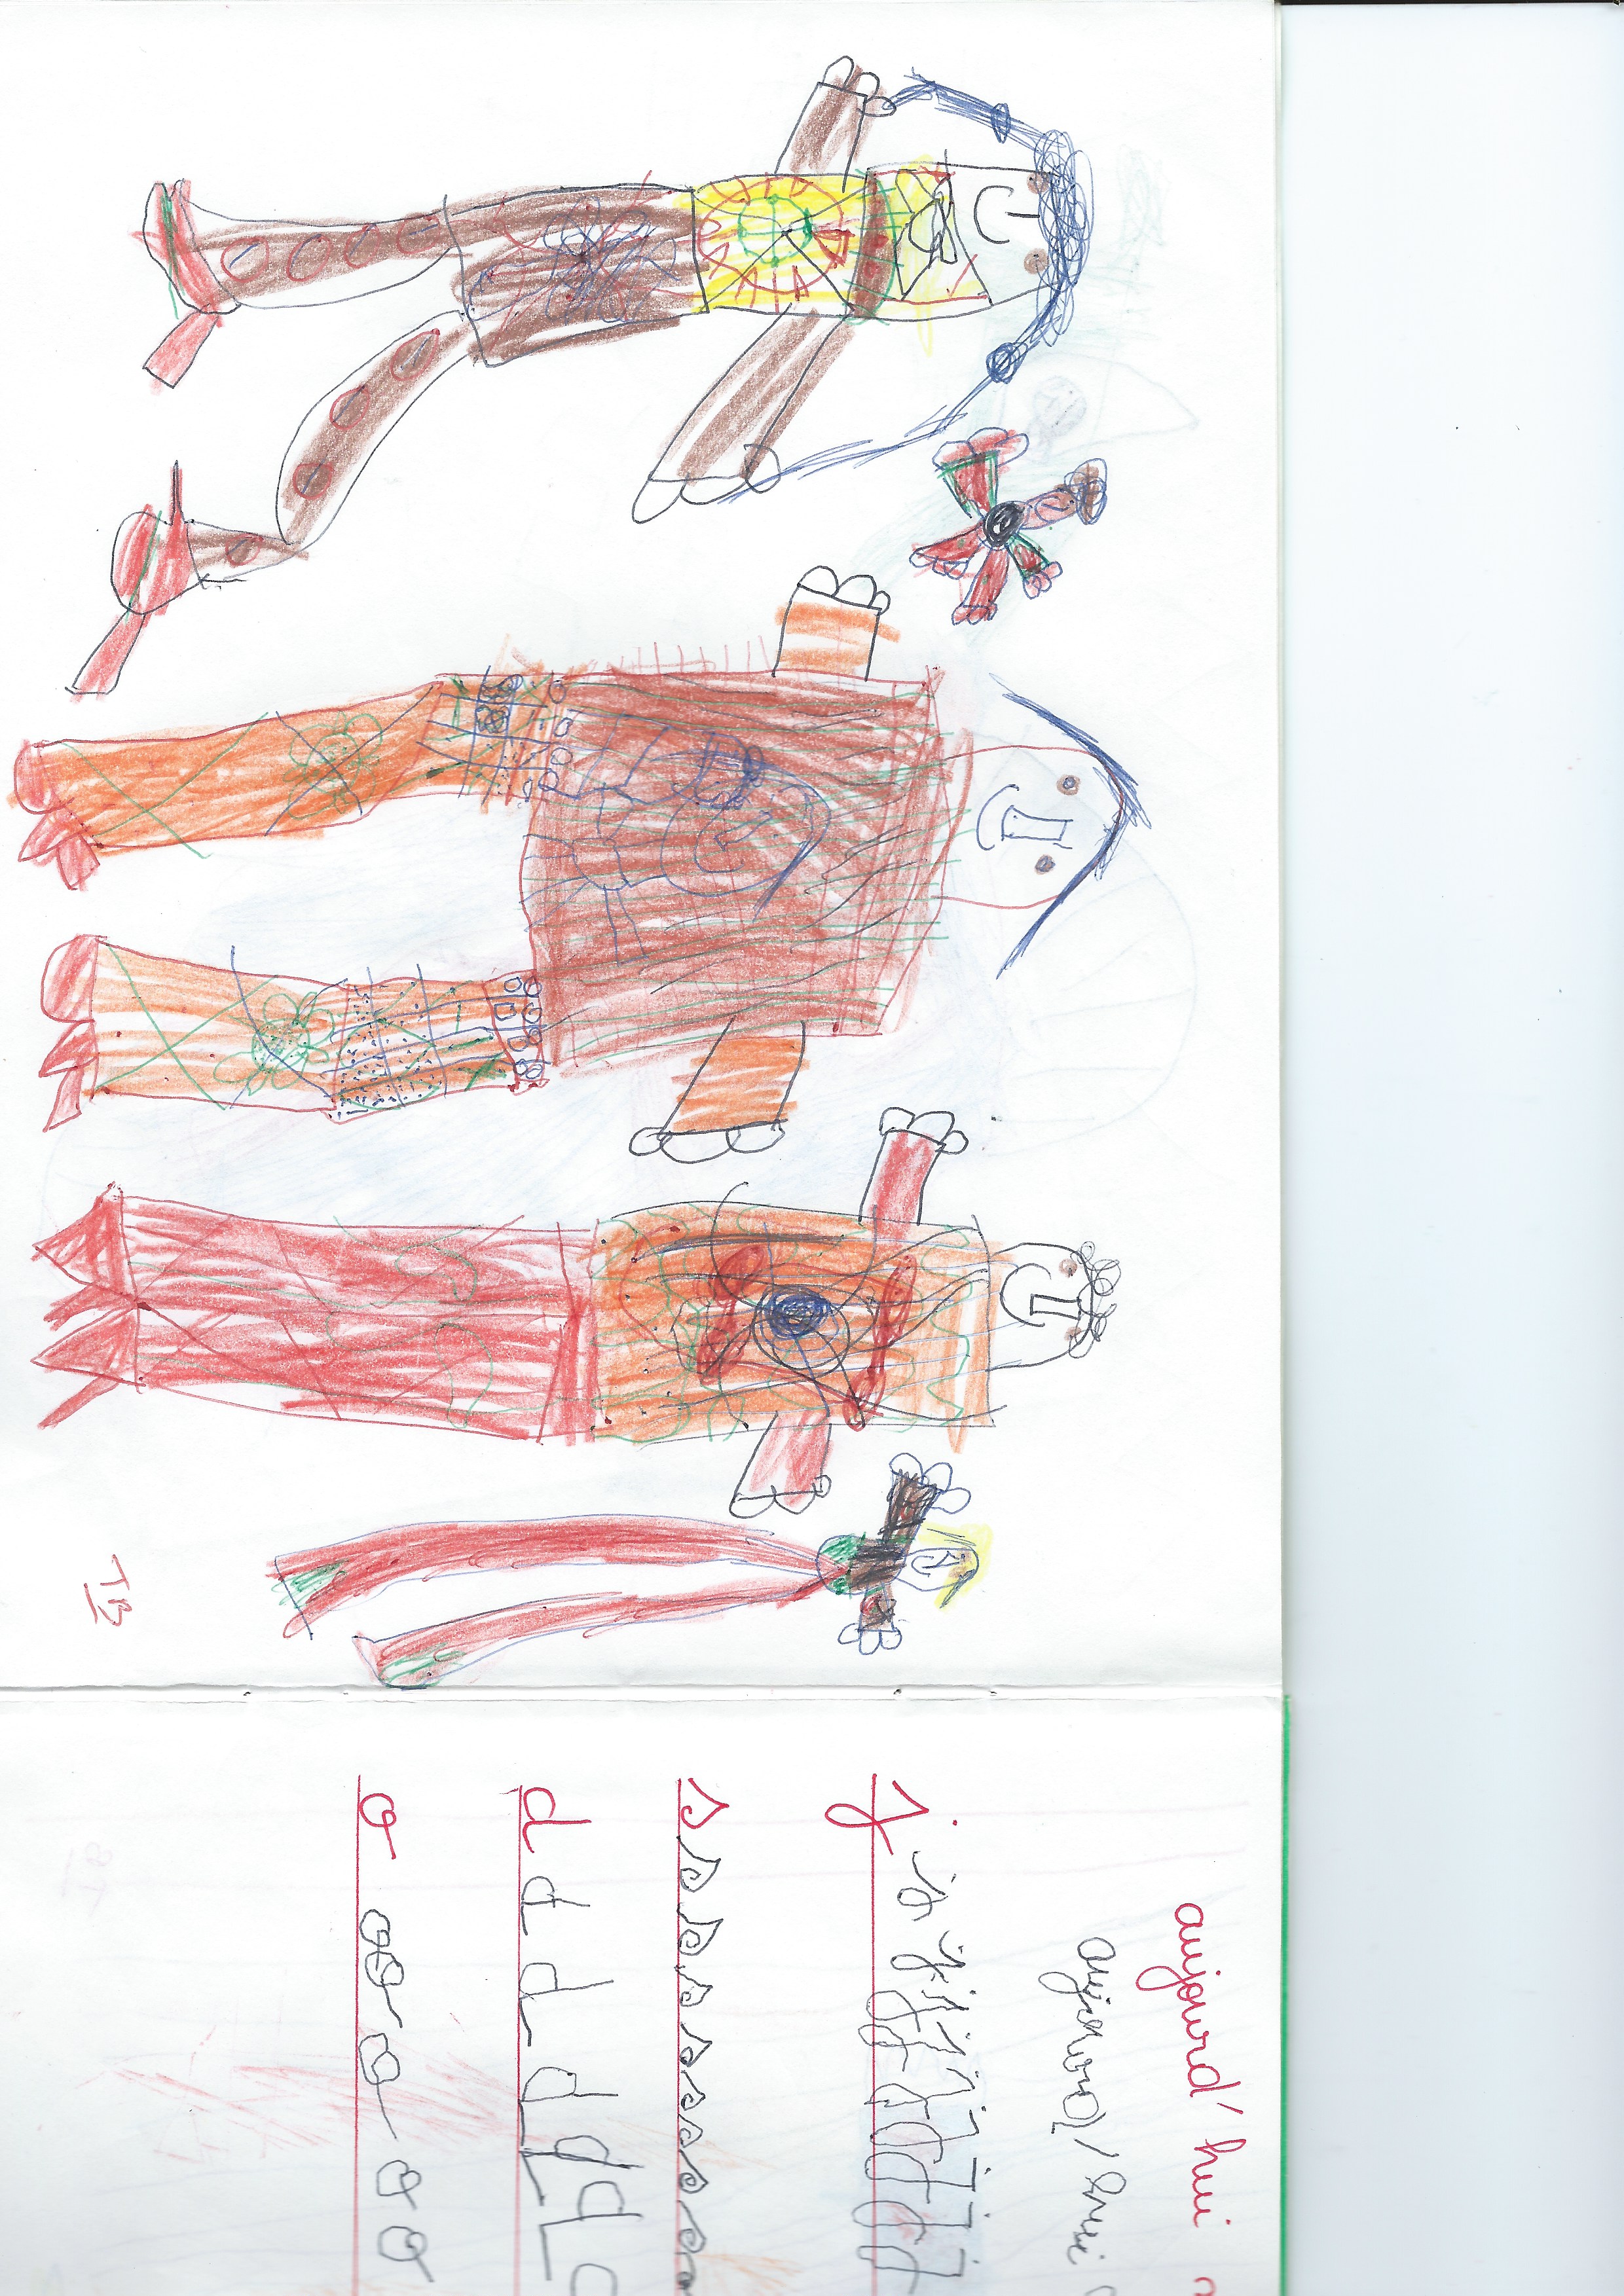 TB
aujourd'hui
aujourd'hui
j j j j j j j j
s s s s s s s s s s
d d d d d d d
o o o o o o